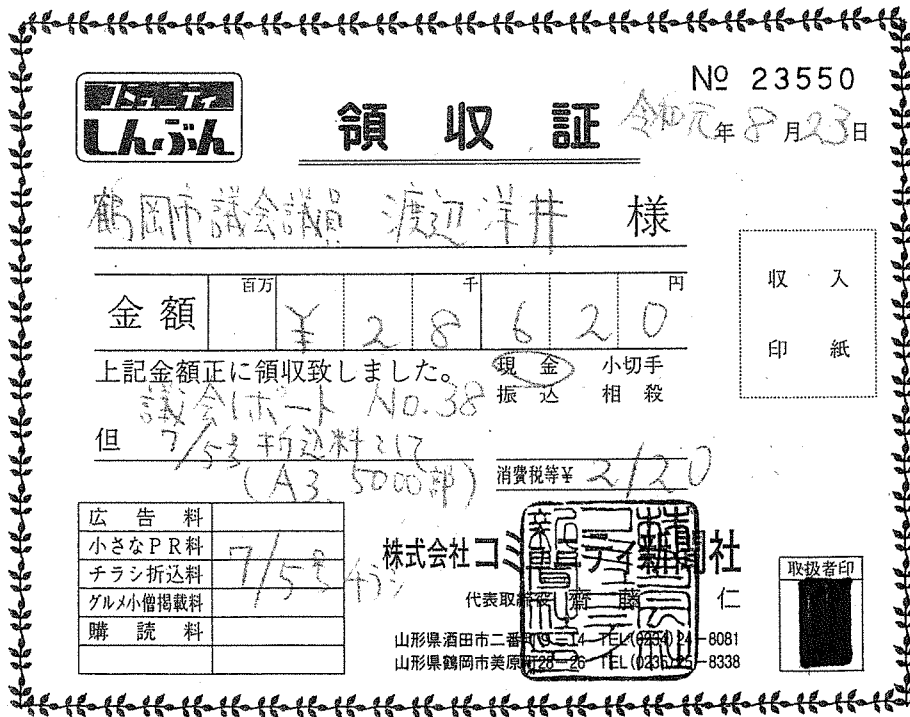 コミュニティ
しんぶん
№ 23550
領収証
令和元年8月23日
鶴岡市議会議員 渡辺洋井 様
金額 百万 千 円
¥28620
上記金額正に領収致しました。
現金 小切手
振込 相殺
議会レポート No.38
但 7/5号 折込料として
(A3. 5000部)
消費税等¥ 2120
収入
印紙
広告料
小さなPR料
チラシ折込料
グルメ小僧掲載料
購読料
7/5号 チラシ
株式会社コミュニティ新聞社
代表取締役 齋藤 仁
山形県酒田市二番町9-14 TEL(0234)24-8081
山形県鶴岡市美原町28-26 TEL(0235)25-8338
取扱者印